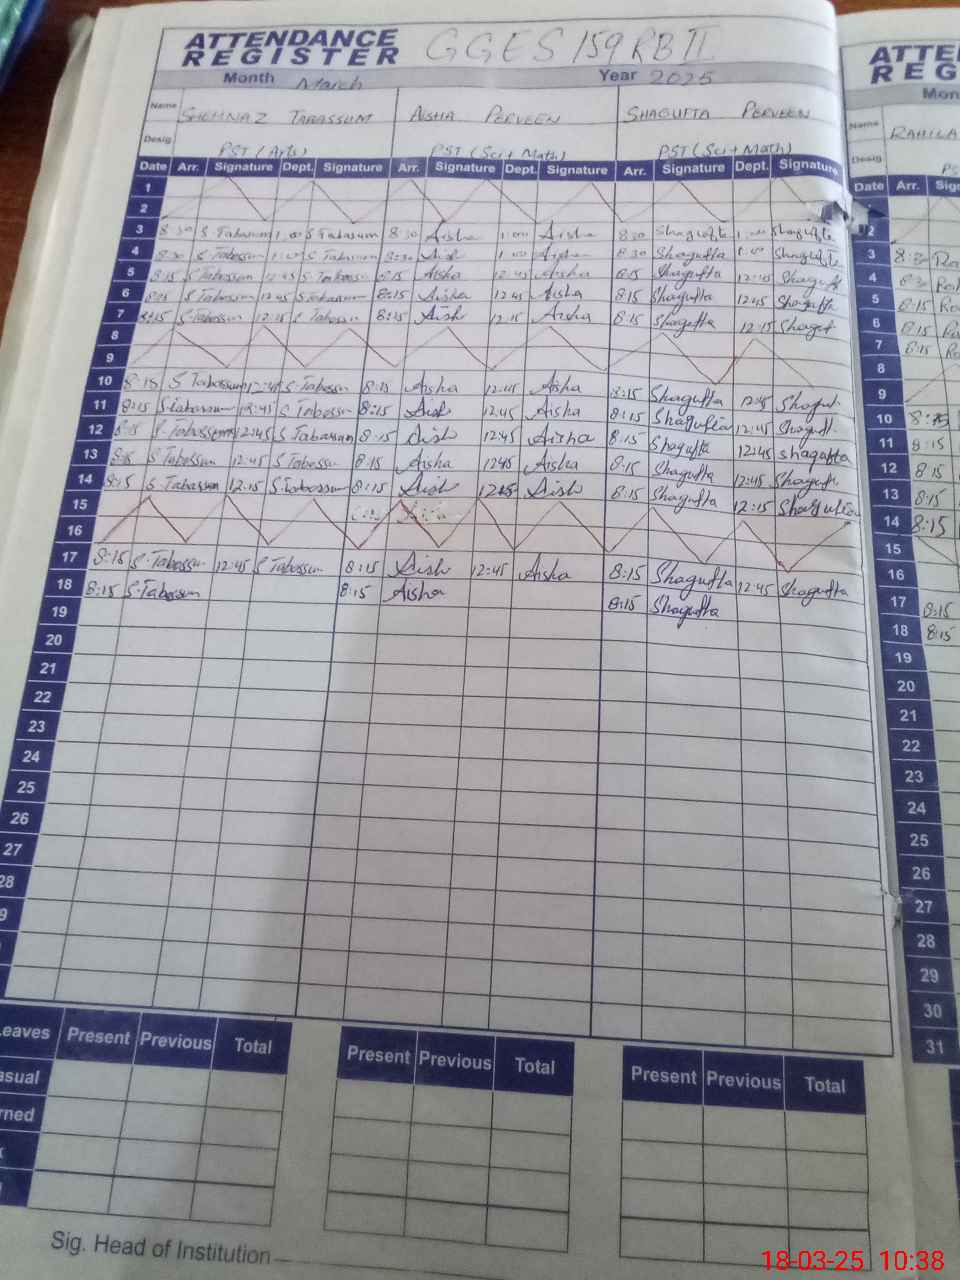 ATTENDANCE REGISTER GGES 159 RB II
Month March Year 2025
Name SHEHNAZ TABASSUM AISHA PERVEEN SHAGUFTA PERVEEN
Desig PST (Arts) PST (Sci + Math) PST (Sci + Math)
Date Arr. Signature Dept. Signature Arr. Signature Dept. Signature Arr. Signature Dept. Signature
1
2
3 8:30 S Tabassum 1:00 S Tabassum 8:30 Aisha 1:00 Aisha 8:30 Shagufta 1:00 Shagufta
4 8:30 S Tabassum 1:00 S Tabassum 8:30 Aish 1:00 Aisha 8:30 Shagufta 1:00 Shagufta
5 8:15 S Tabassum 12:45 S Tabassum 8:15 Aisha 12:45 Aisha 8:15 Shagufta Shaguft
6 8:15 S Tabassum 12:45 S Tabassum 8:15 Aisha 12:45 Aisha 8:15 Shagufta 12:45 Shagufta
7 8:15 S Tabassum 12:15 S Tabassum 8:15 Aish 12:15 Aisha 8:15 Shagufta 12:15 Shaguft
8
9
10 8:15 S Tabassum 12:45 S Tabassum 8:15 Aisha 12:45 Aisha 8:15 Shagufta 12:45 Shaguf
11 8:15 S Tabassum 12:45 S Tabassum 8:15 Aish 12:45 Aisha 8:15 Shagufta 12:45 Shaguft
12 8:15 S Tabassum 12:45 S Tabassum 8:15 Aish 12:45 Aisha 8:15 Shagufta 12:45 Shagufta
13 8:15 S Tabassum 12:45 S Tabassum 8:15 Aisha 12:45 Aisha 8:15 Shagufta 12:45 Shaguft
14 8:15 S Tabassum 12:15 S Tabassum 8:15 Aish 12:15 Aish 8:15 Shagufta 12:15 Shagufta
15
16
17 8:15 S Tabassum 12:45 S Tabassum 8:15 Aish 12:45 Aisha 8:15 Shagufta 12:45 Shagufta
18 8:15 S Tabassum 8:15 Aisha 8:15 Shagufta
19
20
21
22
23
24
25
26
27
28
9
Leaves Present Previous Total Present Previous Total Present Previous Total
asual
rned
Sig. Head of Institution
ATTE
REG
Mon
Name RAHILA
Desig PS
Date Arr. Sig
2
3 8:30 Ra
4 8:30 Ra
5 8:15 Ra
6 8:15 Ra
7 8:15 Ra
8
9
10 8:15
11 8:15
12 8:15
13 8:15
14 8:15
15
16
17 8:15
18 8:15
19
20
21
22
23
24
25
26
27
28
29
30
31
18-03-25 10:38